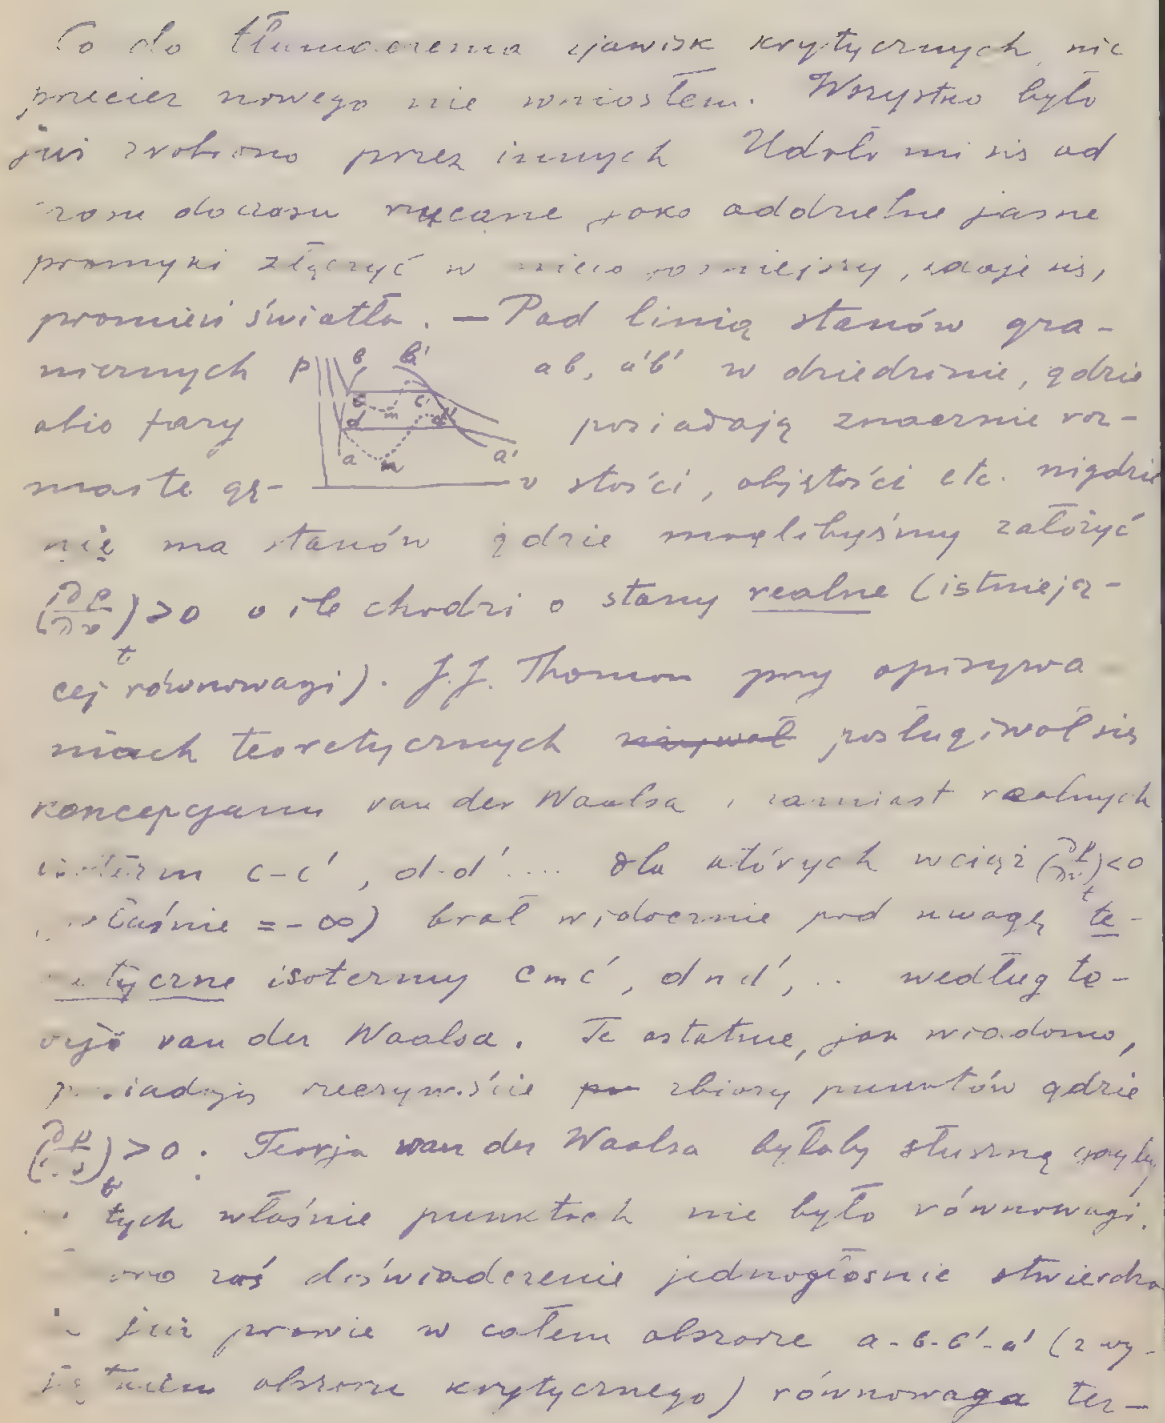 Co do tłumaczenia zjawisk krytycznych, nic
przecież nowego nie wniosłem. Wszystko było
już zrobiono przez innych Udało mi się od
czasu do czasu rzucane jako oddzielne jasne
promyki złączyć w nieco jaśniejszy, zdaje się,
promień światła. — Pod linią stanów gra-
nicznych ab, a'b' w dziedzinie, gdzie
p b b'
c m c'
d d'
a n a'
v
obie fazy posiadają znacznie roz-
maite gę- stości, objętości etc. nigdzie
nie ma stanów gdzie moglibyśmy założyć
(∂p/∂v)t > 0 o ile chodzi o stany realne (istnieją-
cej równowagi). J.J. Thomson przy opisywa
niach teoretycznych używał posługiwał się
koncepcjami van der Waalsa, zamiast realnych
izoterm c-c', d-d' .... dla których wciąż (∂p/∂v)t < 0
właśnie = - ∞) brał widocznie pod uwagę te-
tyczne isotermy cmc', dnd', .. według te-
orji van der Waalsa. Te ostatnie, jak wiadomo,
posiadają rzeczywiście zbiory punktów gdzie
(∂p/∂v)t > 0. Teorja van der Waalsa byłaby słuszną gdyby
tych właśnie punktach nie było równowagi.
zaś doświadczenie jednogłośnie stwierdza
już prawie w całem obszarze a-b-b'-a' (z wy-
jątkiem obszaru krytycznego) równowaga ter-